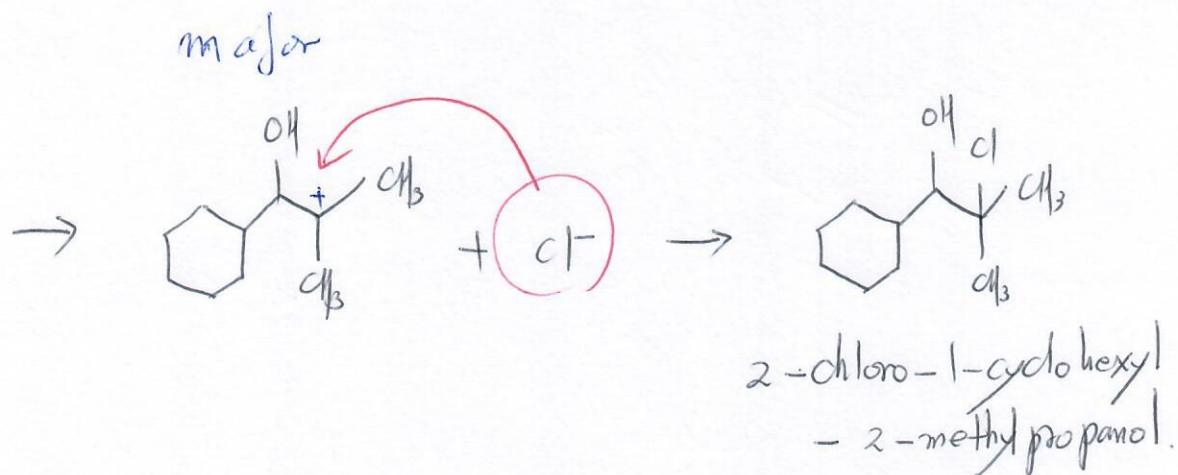 major
OH
+
CH3
CH3
+ Cl⁻
OH
Cl
CH3
CH3
2-chloro-1-cyclohexyl
- 2-methylpropanol.